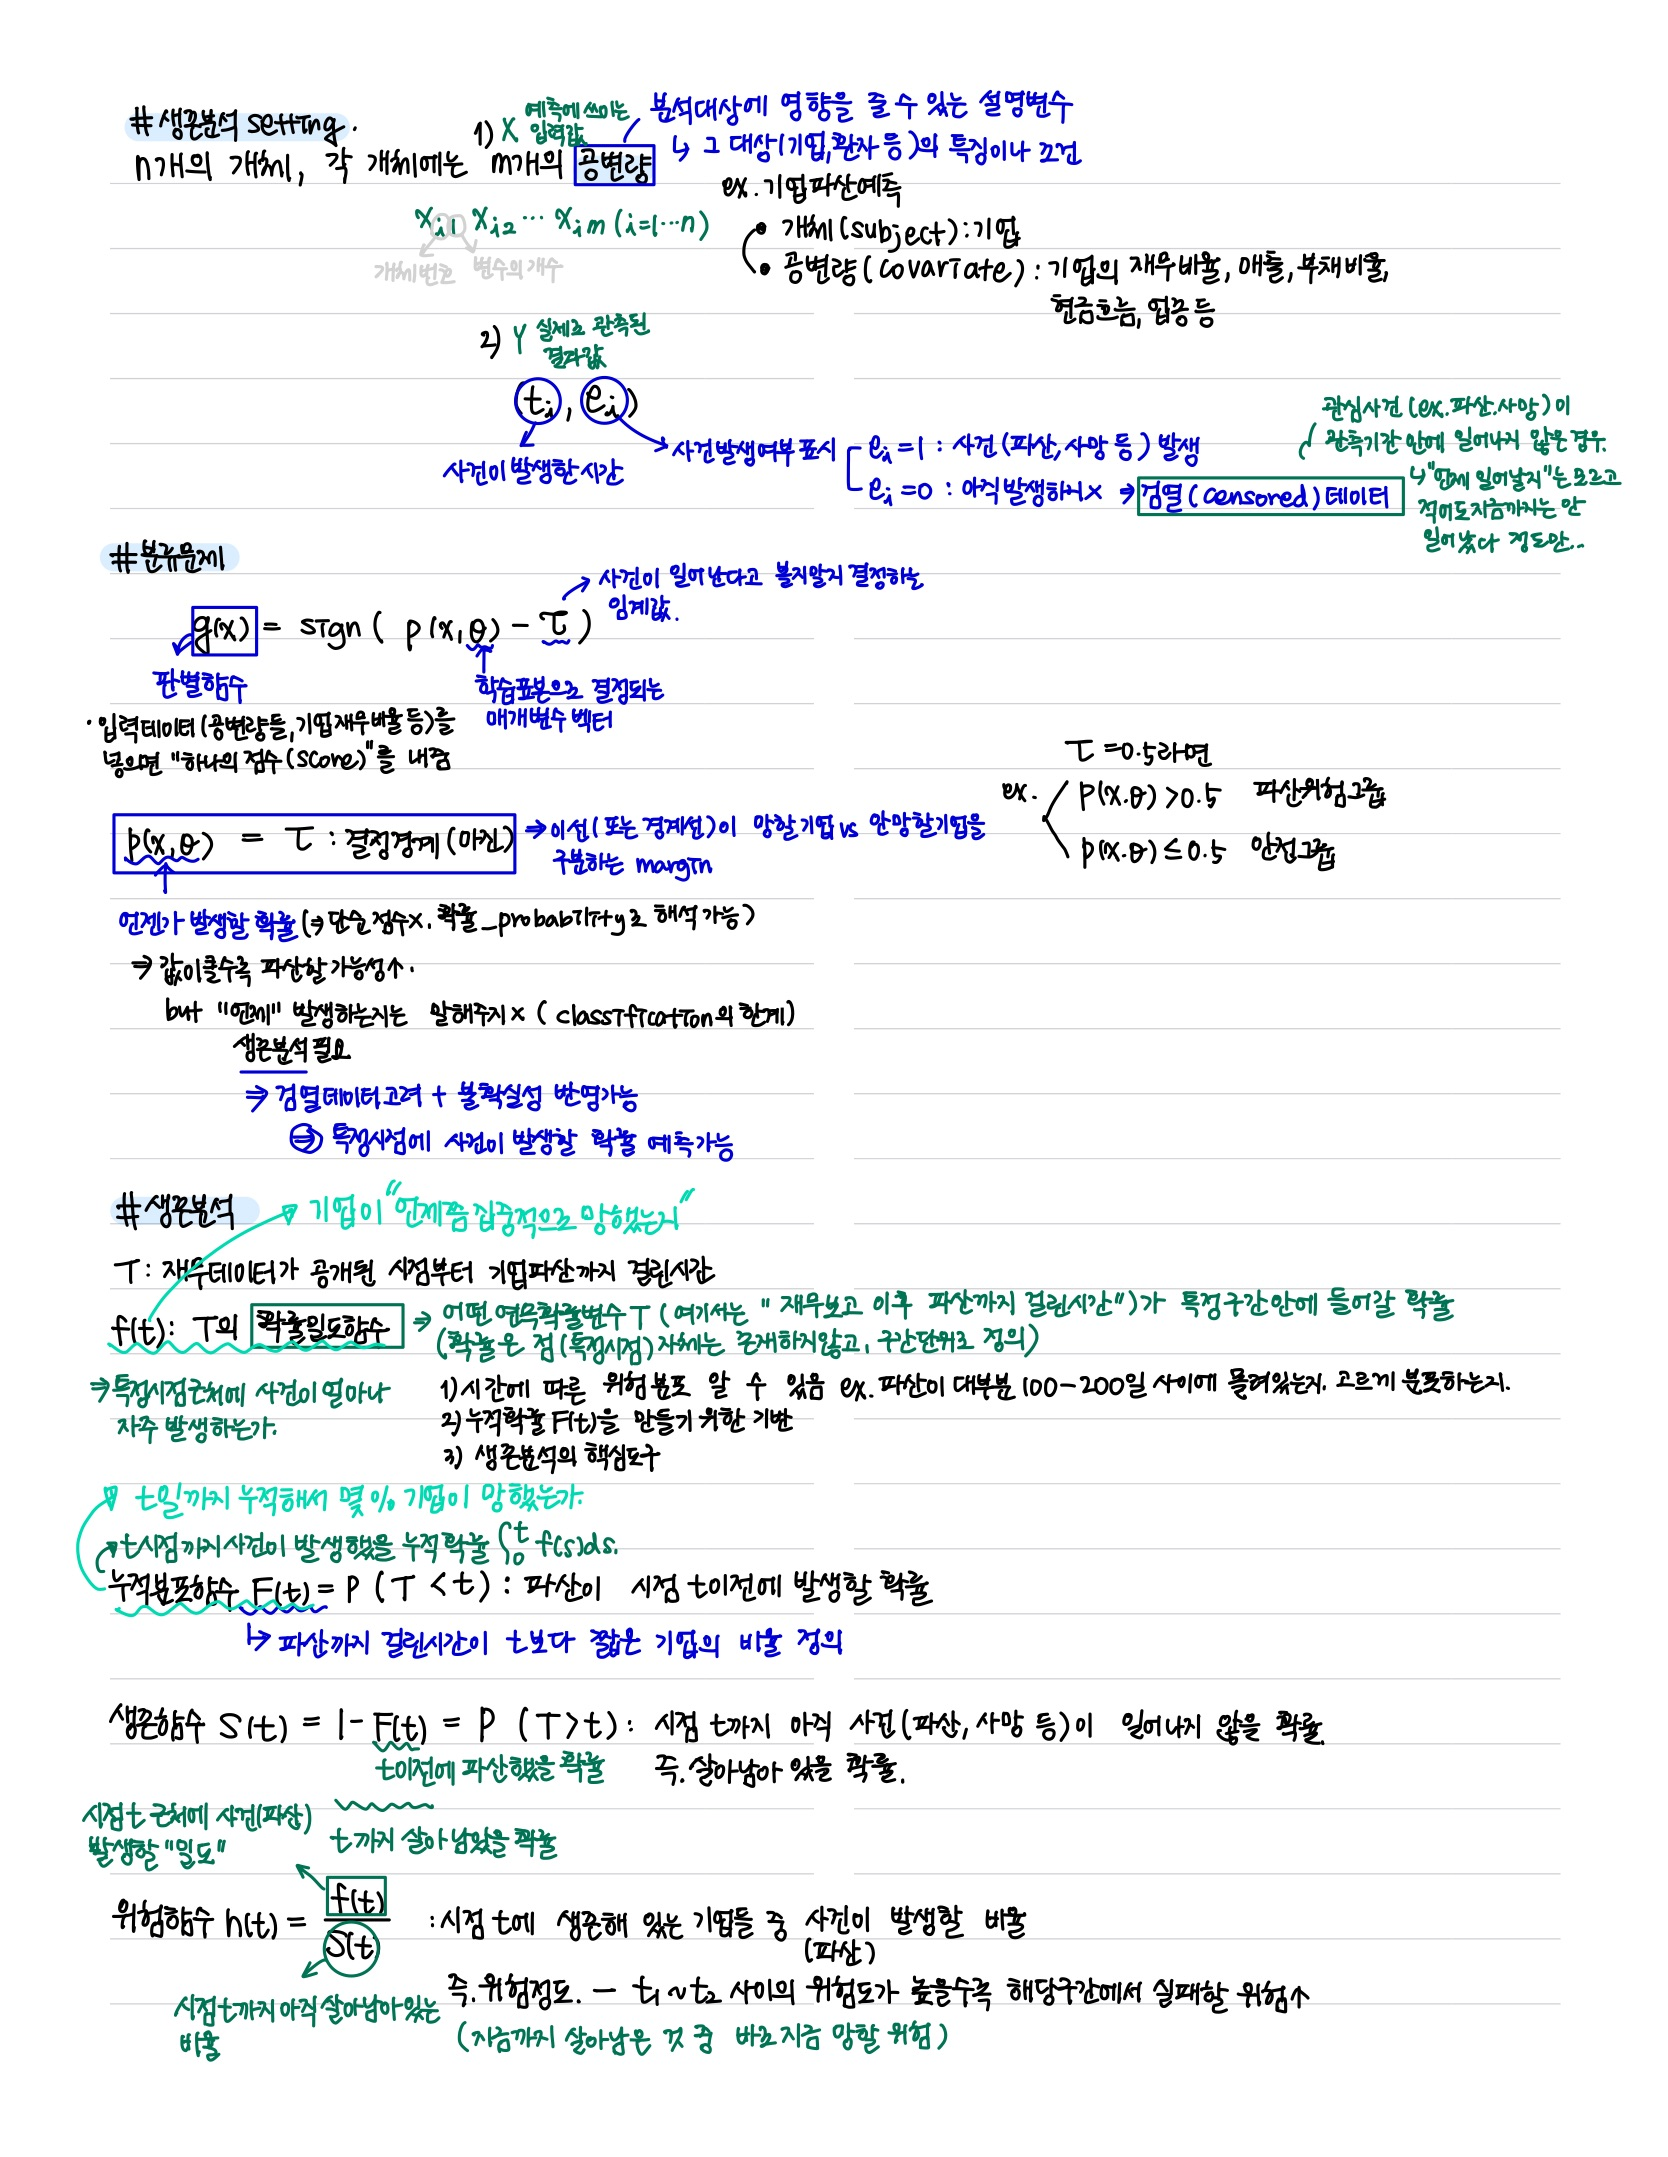 # 생존분석 setting.
1) X 예측에 쓰이는 입력값
분석대상에 영향을 줄 수 있는 설명변수
↳ 그 대상(기업,환자 등)의 특징이나 조건
n개의 개체, 각 개체에는 m개의 공변량
ex. 기업파산예측
Xi1 Xi2 ... Xim (i=1...n)
개체번호 변수의 개수
• 개체(subject):기업
• 공변량(covariate): 기업의 재무비율, 매출, 부채비율,
현금흐름, 업종 등
2) Y 실제로 관측된 결과값
(ti, ei)
사건이 발생한 시간
→ 사건발생여부 표시
ei=1 : 사건(파산,사망 등) 발생
ei=0 : 아직 발생하지 x ⇒ 검열(censored)데이터
관심사건(ex.파산.사망)이
관측기간 안에 일어나지 않은 경우.
↳ "언제 일어날지"는 모르고
적어도 지금까지는 안
일어났다 정도만...
# 분류문제
사건이 일어난다고 볼지말지 결정하는
임계값.
g(x) = sign ( p(x,θ) - τ )
판별함수
학습표본으로 결정되는
매개변수 벡터
· 입력데이터(공변량들,기업재무비율 등)를
넣으면 "하나의 점수(score)"를 내줌
τ=0.5라면
ex.
p(x.θ) >0.5 파산위험그룹
p(x.θ) ≤0.5 안전그룹
p(x,θ) = τ : 결정경계(마진)
⇒ 이선(또는 경계선)이 망할기업 vs 안망할기업을
구분하는 margin
언젠가 발생할 확률 (⇒ 단순 점수x. 확률_probability로 해석 가능)
⇒ 값이클수록 파산할 가능성↑.
but "언제" 발생하는지는 말해주지 x ( classification의 한계)
생존분석 필요
⇒ 검열데이터고려 + 불확실성 반영가능
⇒ 특정시점에 사건이 발생할 확률 예측가능
# 생존분석
기업이 "언제쯤 집중적으로 망했는지"
T: 재무데이터가 공개된 시점부터 기업파산까지 걸린시간
f(t): T의 확률밀도함수
→ 어떤 연속확률변수 T (여기서는 "재무보고 이후 파산까지 걸린시간")가 특정구간 안에 들어갈 확률
(확률은 점(특정시점)자체는 존재하지않고, 구간단위로 정의)
⇒ 특정시점근처에 사건이 얼마나
자주 발생하는가.
1) 시간에 따른 위험 분포 알 수 있음 ex. 파산이 대부분 100-200일 사이에 몰려있는지. 고르게 분포하는지.
2) 누적확률 F(t)을 만들기 위한 기반
3) 생존분석의 핵심도구
t일까지 누적해서 몇% 기업이 망했는가.
t시점까지 사건이 발생했을 누적확률 ∫0t f(s)ds.
누적분포함수 F(t) = P ( T < t ) : 파산이 시점 t이전에 발생할 확률
↳ 파산까지 걸린시간이 t보다 짧은 기업의 비율 정의
생존함수 S(t) = 1- F(t) = P ( T > t ) : 시점 t까지 아직 사건(파산, 사망 등)이 일어나지 않을 확률.
t이전에 파산했을 확률
즉. 살아남아 있을 확률.
시점 t 근처에 사건(파산)
발생할 "밀도"
t까지 살아남았을 확률
위험함수 h(t) = f(t) / S(t : 시점 t에 생존해 있는 기업들 중 사건이 발생할 비율
(파산)
시점 t까지 아직 살아남아있는
비율
즉. 위험정도. — t1 ~ t2 사이의 위험도가 높을수록 해당구간에서 실패할 위험↑
(지금까지 살아남은 것 중 바로 지금 망할 위험)